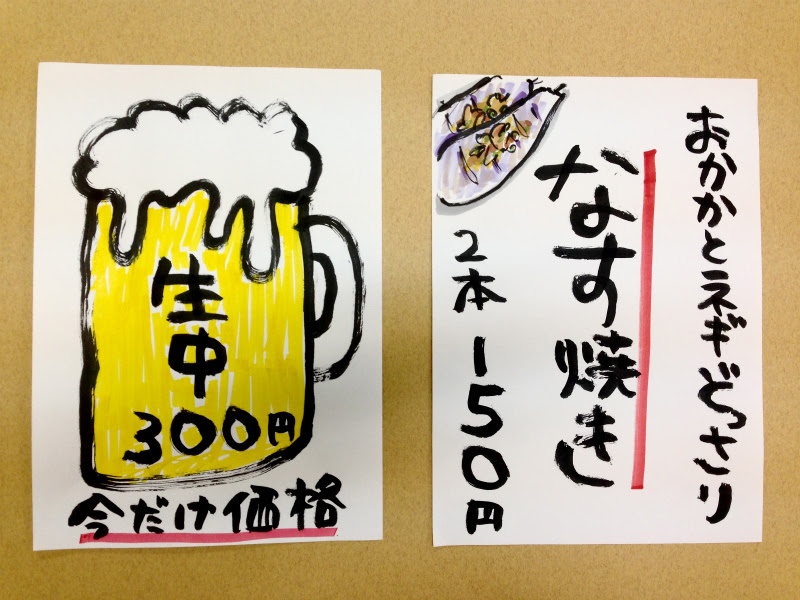 生中
300円
今だけ価格
おかかとネギどっさり
なす焼き
2本 150円